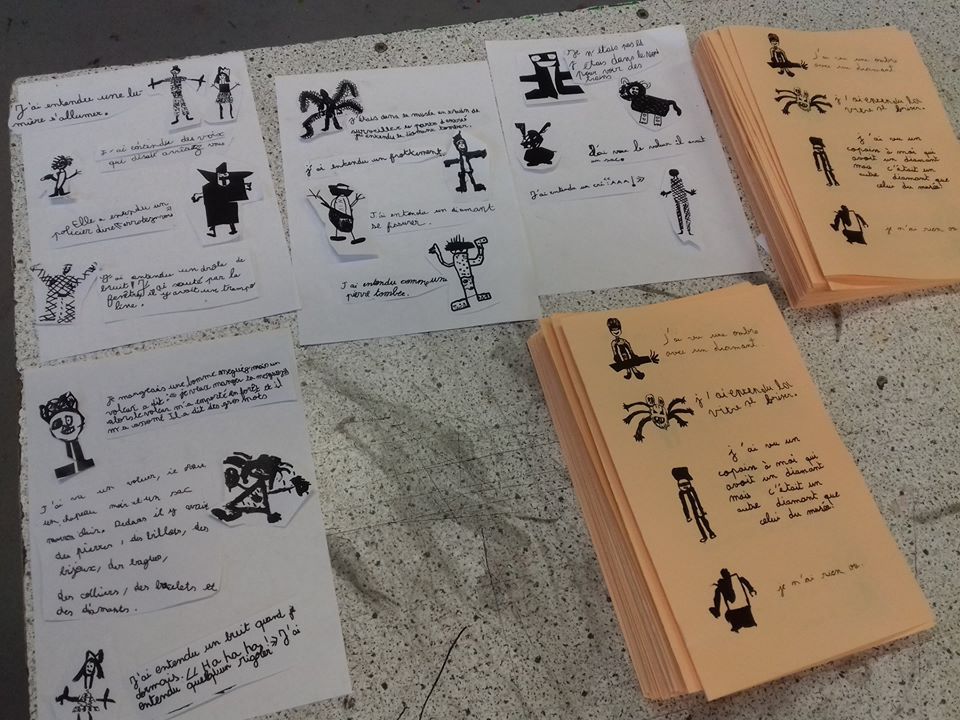 J'ai entendu une lu-
mière s'allumer.
J'ai entendu des voix
qui disait arrêtez vous
Elle a entendu un
policier dire
J'ai entendu un drôle de
bruit! J'ai sauté par la
fenêtre, il y avait un trampo
line.
J'étais dans le musée en
surveiller
j'ai entendu un frottement
J'ai entendu un diamant
se fissurer.
J'ai entendu comme une
pierre tombée.
Je n'étais pas là
j'étais dans le Nord
pour voir des
biens
J'ai vu le voleur il avait
un sac.
J'ai entendu un cri "AAA!"
J'ai vu une ombre
avec un diamant.
j'ai entendu la
vitre se briser.
j'ai vu un
copain à moi qui
avait un diamant
mais c'était un
autre diamant que
celui du musée!
je n'ai rien vu.
Je mangeais une pomme
voleur a dit : je veux manger
alors le voleur m'a emporté en forêt et il
m'a assomé Il a dit des gros mots
J'ai vu un voleur,
un chapeau noir et un sac
Dedans il y avait
des pierres, des billets, des
bijoux, des bagues,
des colliers, des bracelets et
des diamants.
J'ai entendu un bruit quand je
dormais. << Ha ha ha! >> J'ai
entendu quelqu'un rigoler
J'ai vu une ombre
avec un diamant.
j'ai entendu la
vitre se briser.
j'ai vu un
copain à moi qui
avait un diamant
mais c'était un
autre diamant que
celui du musée!
je n'ai rien vu.